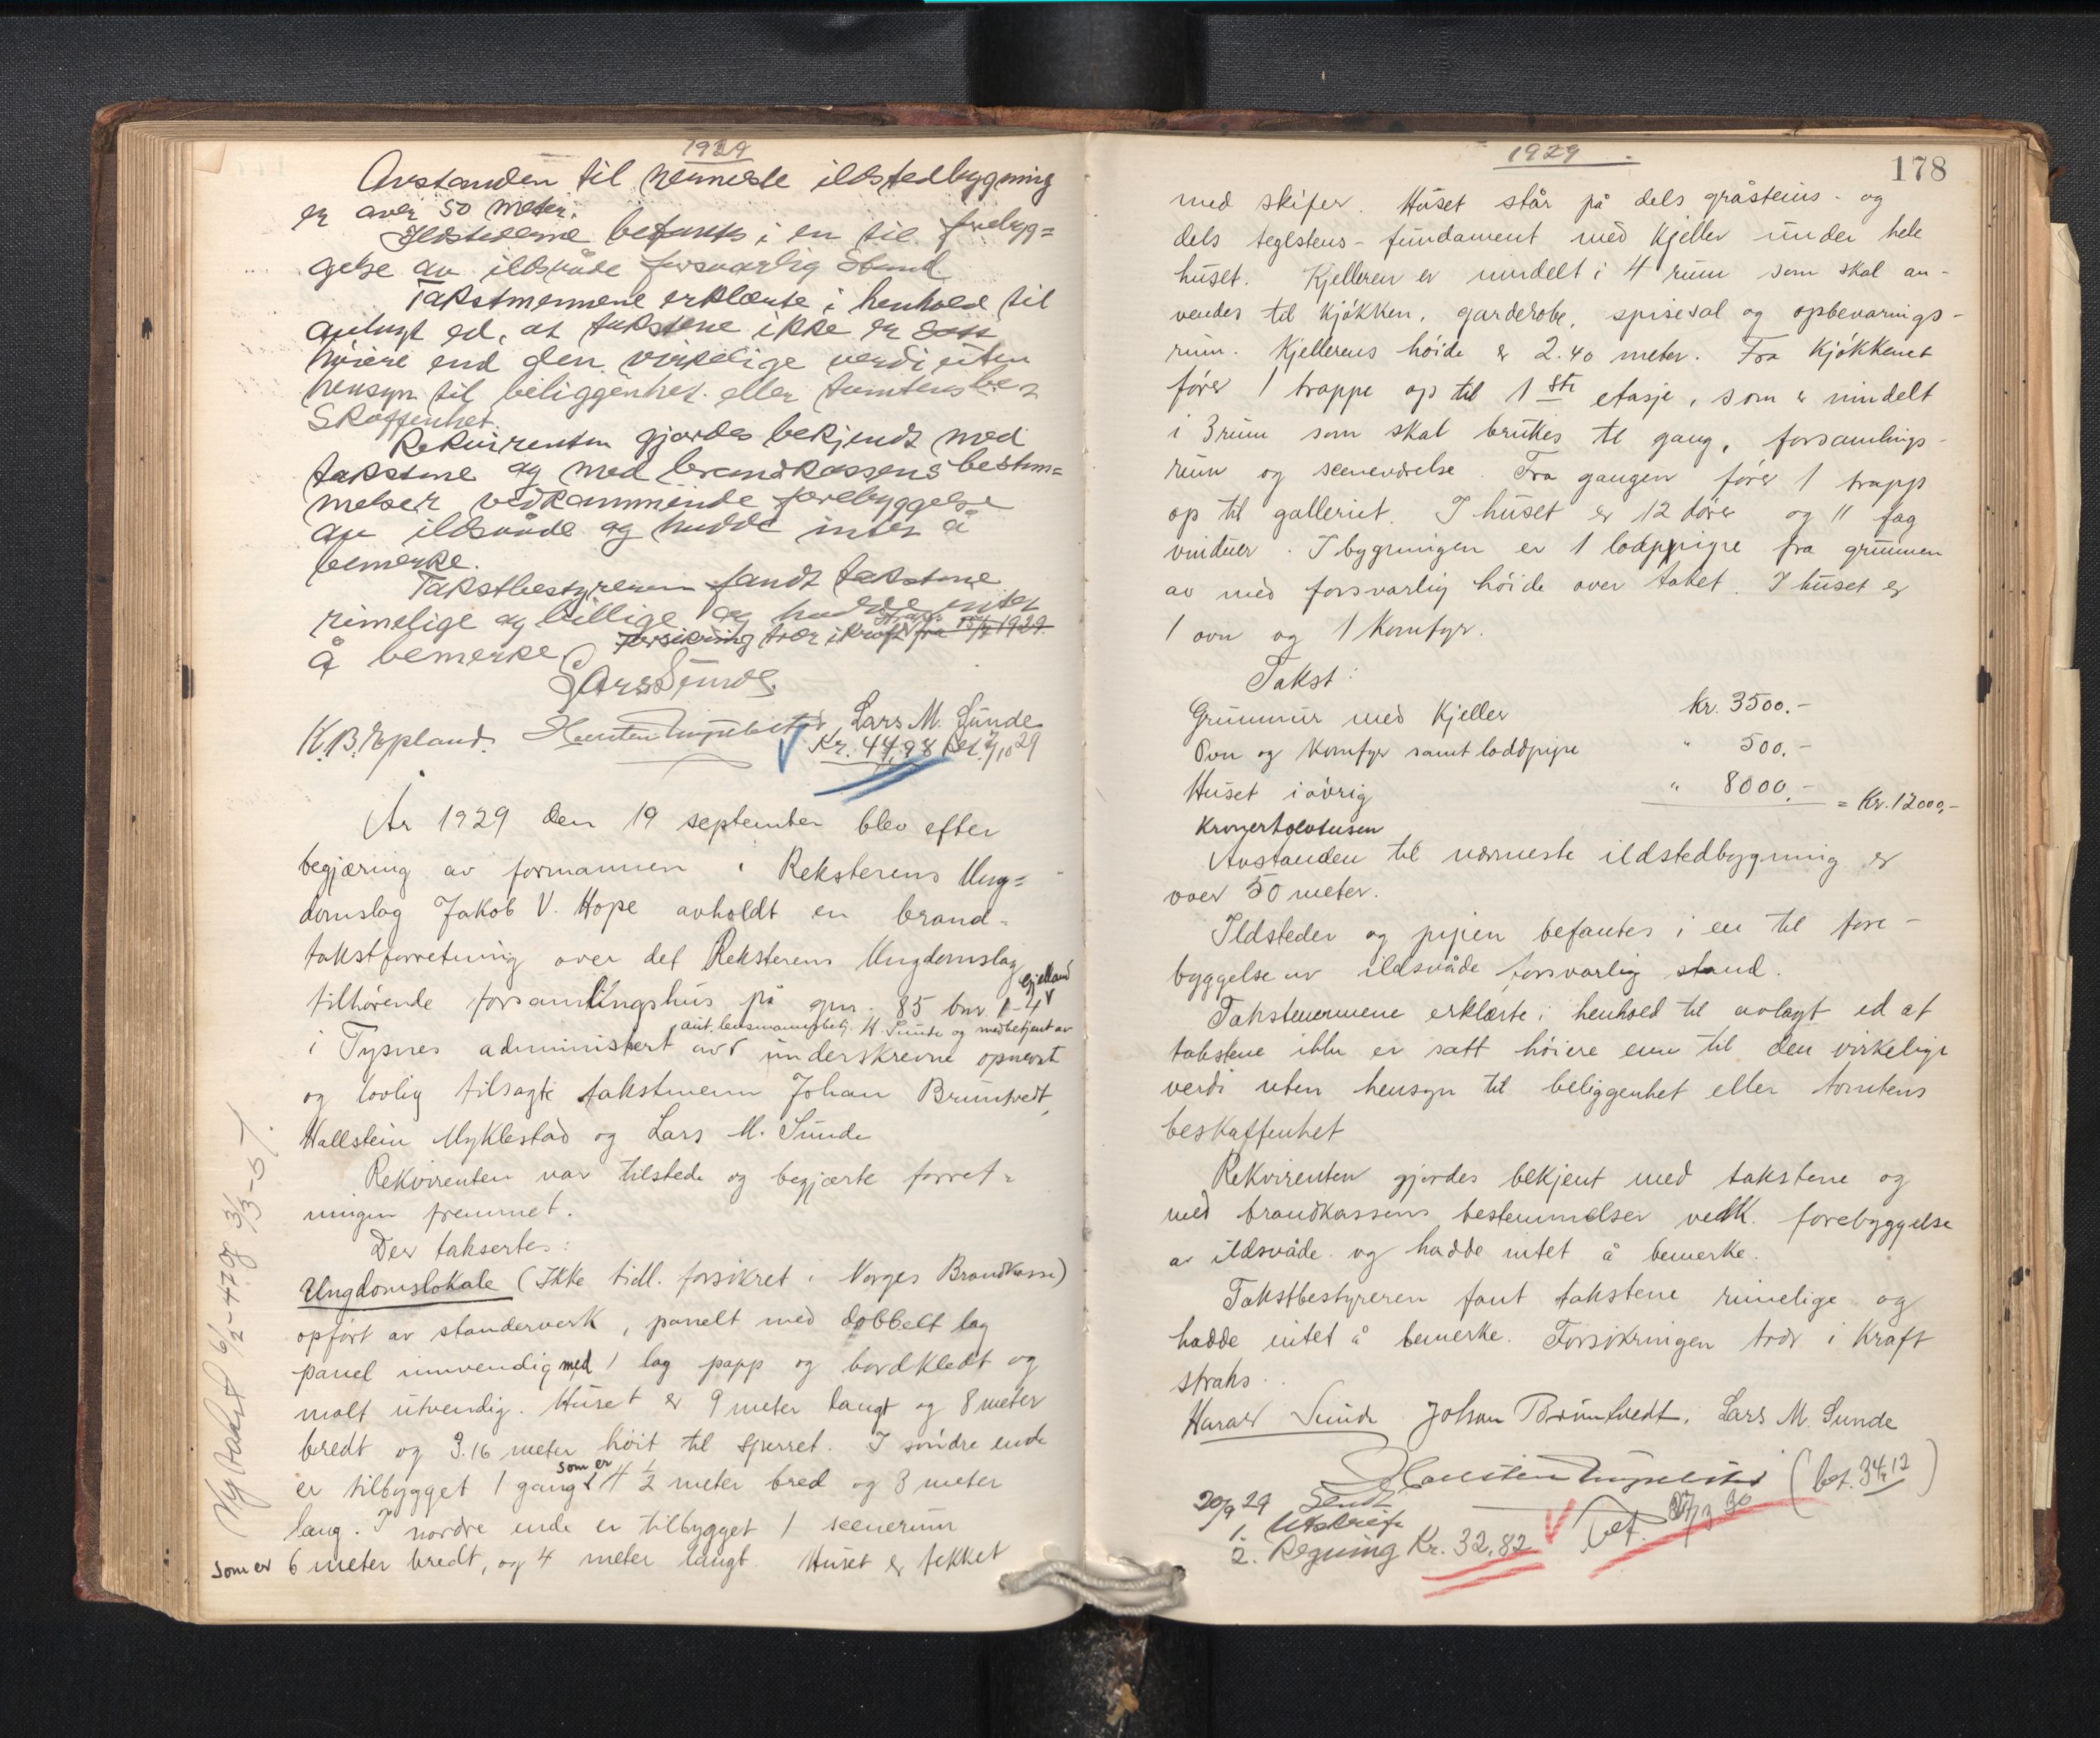 1929
Avstanden til nermeste ildstedbygning
er over 50 meter.
Ildstederne befantes i en til forebyg=
gelse av ildsvåde forsvarlig stand.
Takstmennene erklærte i henhold til
avlagt ed, at takstene ikke er satt
høiere end den virkelige verdi uten
hensyn til beliggenhet eller tomtens be=
skaffenhet.
Rekvirenten gjordes bekjendt med
takstene og med brandkassens bestem=
melser vedkommende forebyggelse
av ildsvåde og hadde intet å
bemerke.
Takstbestyreren fandt takstene
rimelige og billige og hadde intet
å bemerke. Forsikring trær i kraft straks fra 15/9 1929.
Lars Sunde
K.B. Epland. Lars M. Sunde
Kr. 44,98 bet. 7/10 29
År 1929 den 19 september blev efter
begjæring av formannen i Reksterens Ung=
domslag Jakob V. Hope avholdt en brand=
takstforretning over det Reksterens Ungdomslag
tilhørende forsamlingshus på gnr. 85 bnr. 1-4 Gjelland
i Tysnes administert av aut. lensmannsbetj. H. Sunde og medbetjent av underskrevne opnevnte
og lovlig tilsagte takstmenn Johan Bruntvedt,
Hallstein Myklestad og Lars M. Sunde
Rekvirenten var tilstede og begjærte forret=
ningen fremmet.
Der taksertes:
Ungdomslokale (Ikke tidl. forsikret i Norges Brandkasse)
opført av standerverk, panelt med dobbelt lag
panel innvendig med 1 lag papp og bordkledt og
malt utvendig. Huset er 9 meter langt og 8 meter
bredt og 3.16 meter høit til sperret. I søndre ende
er tilbygget 1 gang som er 4 1/2 meter bred og 3 meter
lang. I nordre ende er tilbygget 1 scenerum
som er 6 meter bredt, og 4 meter langt. Huset er tekket
Ny takst 6/2-47 og 3/3-57.
1929.
178
med skifer. Huset står på dels gråsteins- og
dels teglstens-fundament med kjeller under hele
huset. Kjelleren er inndelt i 4 rum som skal an-
vendes til kjøkken, garderobe, spisesal og opbevarings-
rum. Kjellerens høide er 2.40 meter. Fra kjøkkenet
fører 1 trappe op til 1ste etasje, som er inndelt
i 3 rum som skal brukes til gang, forsamlings-
rum og sceneværelse. Fra gangen fører 1 trapp
op til galleriet. I huset er 12 dører og 11 fag
vinduer. I bygningen er 1 loddpipe fra grunnen
av med forsvarlig høide over taket. I huset er
1 ovn og 1 komfyr.
Takst:
Grunnmur med kjeller kr. 3500.-
Ovn og komfyr samt loddpipe " 500.-
Huset i øvrig " 8000.- = Kr. 12000,-
Kronertolvtusen
Avstanden til nærmeste ildstedbygning er
over 50 meter.
Ildsteder og pipen befantes i en til fore-
byggelse av ildsvåde forsvarlig stand.
Takstmennene erklærte i henhold til avlagt ed at
takstene ikke er satt høiere enn til den virkelige
verdi uten hensyn til beliggenhet eller tomtens
beskaffenhet
Rekvirenten gjordes bekjent med takstene og
med brandkassens bestemmelser vedk. forebyggelse
av ildsvåde og hadde intet å bemerke.
Takstbestyreren fant takstene rimelige og
hadde intet å bemerke. Forsikringen trær i kraft
straks.
Harald Sunde Johan Bruntvedt. Lars M. Sunde
(bet. 34,12)
20/9 29 Sendt
1. Utskrift
2. Regning Kr. 32,82 bet. 27/3 30